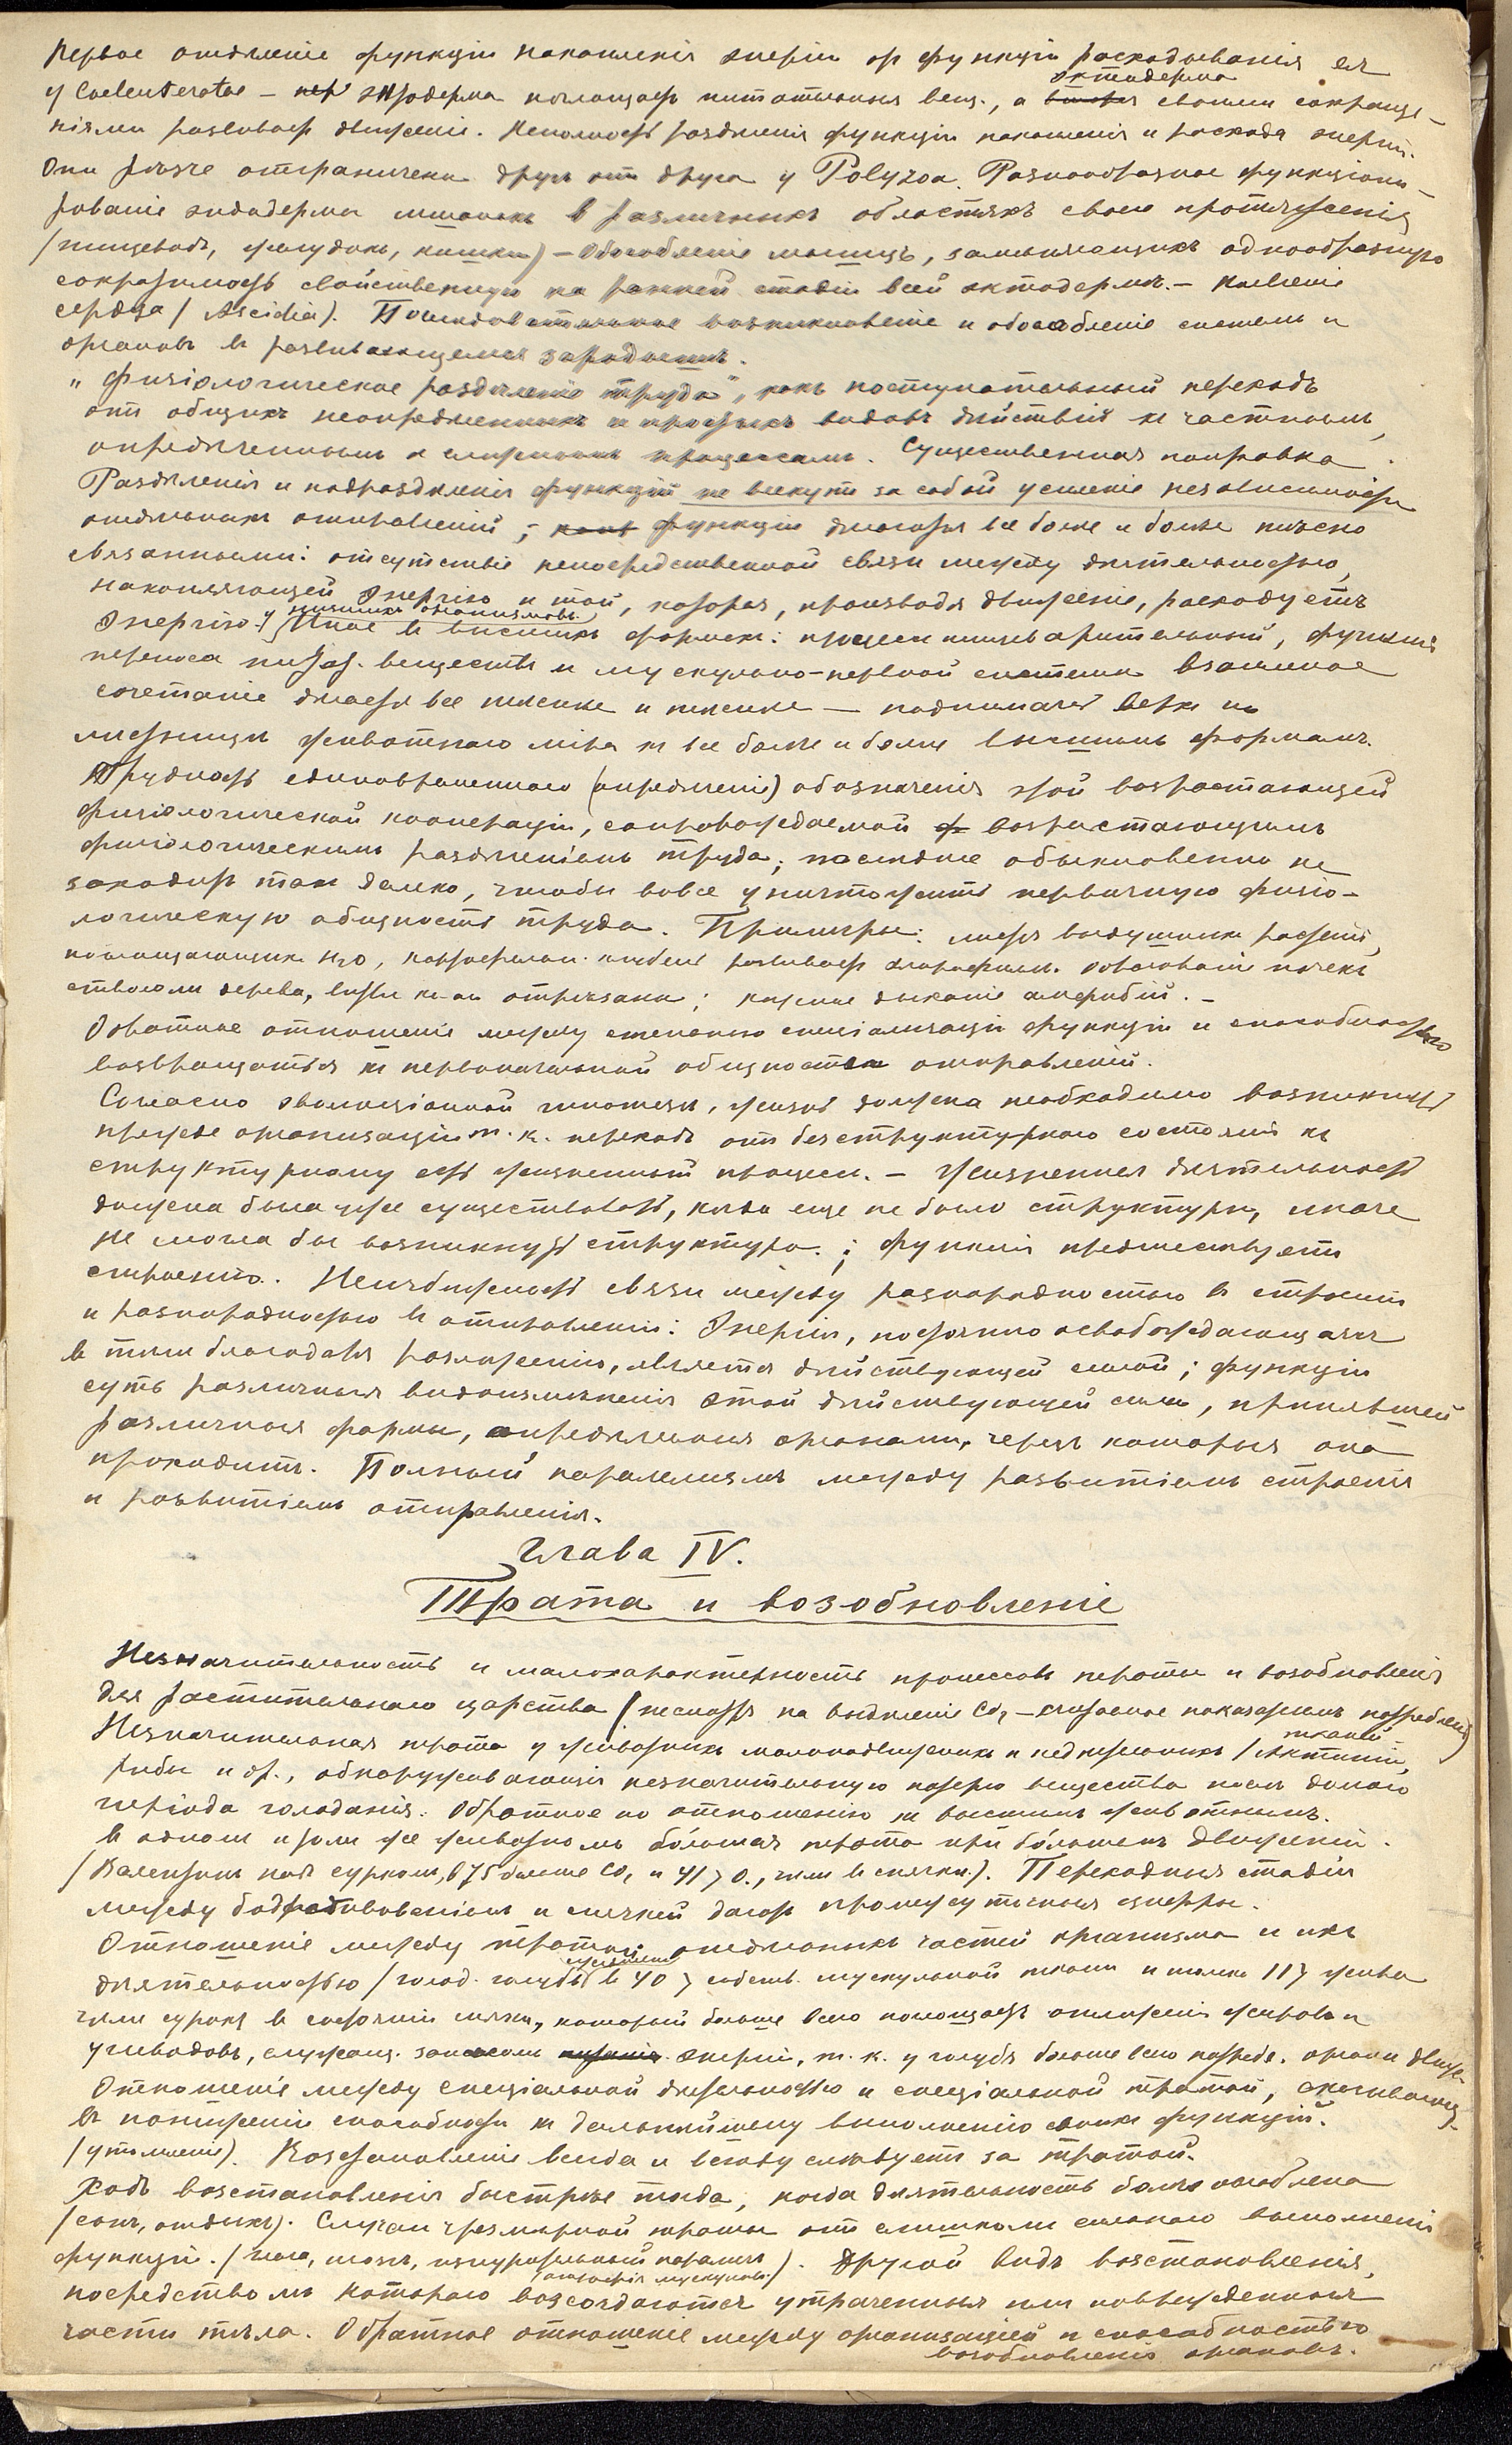 Первое отдѣленіе функціи накопленія энергіи отъ функціи расходыванія ея
у Coelenteratae — энтодерма поглощаетъ питательныя вещ., а эктодерма своими сокраще-
ніями развиваетъ движеніе. Неполность раздѣленія функціи накопленія и расхода энергіи.
Они рѣзче отграничены другъ отъ друга у Polyzoa. Разнообразное функціони-
рованіе эндодермы мшанокъ въ различныхъ областяхъ своего протяженія
(пищеводъ, желудокъ, кишки) — Обособленіе мышцъ, замѣняющихъ однообразную
сократимость свойственную на ранней стадіи всей эктодермѣ. —
сердца (Ascidia). Послѣдовательное возникновеніе и обособленіе системъ и
органовъ въ развивающемся зародышѣ.
„Физіологическое раздѣленіе труда", какъ поступательный переходъ
отъ общихъ неопредѣленныхъ и простыхъ видовъ дѣйствія къ частнымъ,
опредѣленнымъ и сложнымъ процессамъ. Существенная поправка.
Раздѣленія и подраздѣленія функцій не влекутъ за собой усиленіе независимости
отдѣльныхъ отправленій; функціи дѣлаются все болѣе и болѣе тѣсно
связанными: отсутствіе непосредственной связи между дѣятельностью,
накопляющей энергію и той, которая, производя движеніе, расходуетъ
энергію у низшихъ организмовъ. Иное въ высшихъ формахъ: процессъ пищеварительный, функція
переноса питат. веществъ и мускульно-нервной системы взаимное
сочетаніе дѣлается все тѣснѣе и тѣснѣе — поднимаясь вверхъ по
лѣстницѣ животнаго міра къ все болѣе и болѣе высшимъ формамъ.
Трудность единовременнаго (опредѣленія) обозначенія этой возрастающей
физіологической коопераціи, сопровождаемой возрастающимъ
физіологическимъ раздѣленіемъ труда; послѣднее обыкновенно не
заходитъ такъ далеко, чтобы вовсе уничтожить первичную физіо-
логическую общность труда. Примѣры: листья воздушныхъ растеній,
поглощающихъ H2O, стебель развиваетъ хлорофиллъ. Образованіе почекъ
стволомъ дерева, вѣтви кот. отрѣзаны; кожное дыханіе амфибій. —
Обратное отношеніе между степенью спеціализаціи функціи и способностью
возвращаться къ первоначальной общности отправленій.
Согласно эволюціонной гипотезы, жизнь должна необходимо возникнуть
прежде организаціи т. к. переходъ отъ безструктурнаго состоянія къ
структурному есть жизненный процессъ. — Жизненная дѣятельность
должна была уже существовать, когда еще не было структуры, иначе
не могла бы возникнуть структура; функція предшествуетъ
строенію. Неизбѣжность связи между разнородностью въ строеніи
и разнородностью въ отправленіи: Энергія, постоянно освобождающаяся
въ тѣлѣ благодаря разложенію, является дѣйствующей силой; функціи
суть различныя видоизмѣненія этой дѣйствующей силы, принявшей
различныя формы, опредѣляемыя органами, черезъ которые она
проходитъ. Полный паралелизмъ между развитіемъ строенія
и развитіемъ отправленія.
Глава IV.
Трата и возобновленіе
Незначительность и малохарактерность процессовъ траты и возобновленія
для растительнаго царства (несмотря на выдѣленіе CO2 —
тканей
Незначительная трата у животныхъ малоподвижныхъ и недѣятельныхъ (Актиніи,
рыбы и др., обнаруживающія незначительную потерю вещества послѣ долгаго
періода голоданія. Обратное по отношенію къ высшимъ животнымъ.
въ одномъ и томъ же животномъ бо́льшая трата при бо́льшемъ движеніи.
Переходныя стадіи
между бодрствованіемъ и спячкой даютъ промежуточныя цифры.
Отношеніе между тратой отдѣльныхъ частей организма и ихъ
дѣятельностью (голод. голубь в 40 % собств. мускульной ткани и только 11 % жира
чѣмъ сурокъ въ состояніи спячки, который больше всего поглощаетъ отложенія жировъ и
углеводовъ, служащ. запасомъ энергіи, т. к. у голубя больше всего потребл. органы движ.
Отношеніе между спеціальной дѣятельностью и спеціальной тратой,
въ пониженіи способности къ дальнѣйшему выполненію своихъ функцій.
(утомленіе). Возстановленіе всегда и всюду слѣдуетъ за тратой.
Ходъ возстановленія быстрѣе тогда, когда дѣятельность болѣе ослаблена
(сонъ, отдыхъ). Случаи чрезмѣрной траты отъ слишкомъ сильнаго выполненія
функцій. (глаза, мозгъ, изнурительный параличъ атрофія мускуловъ). Другой видъ возстановленія,
посредствомъ котораго возсоздаются утраченныя или поврежденныя
части тѣла. Обратное отношеніе между организаціей и способностью
возобновленія органовъ.